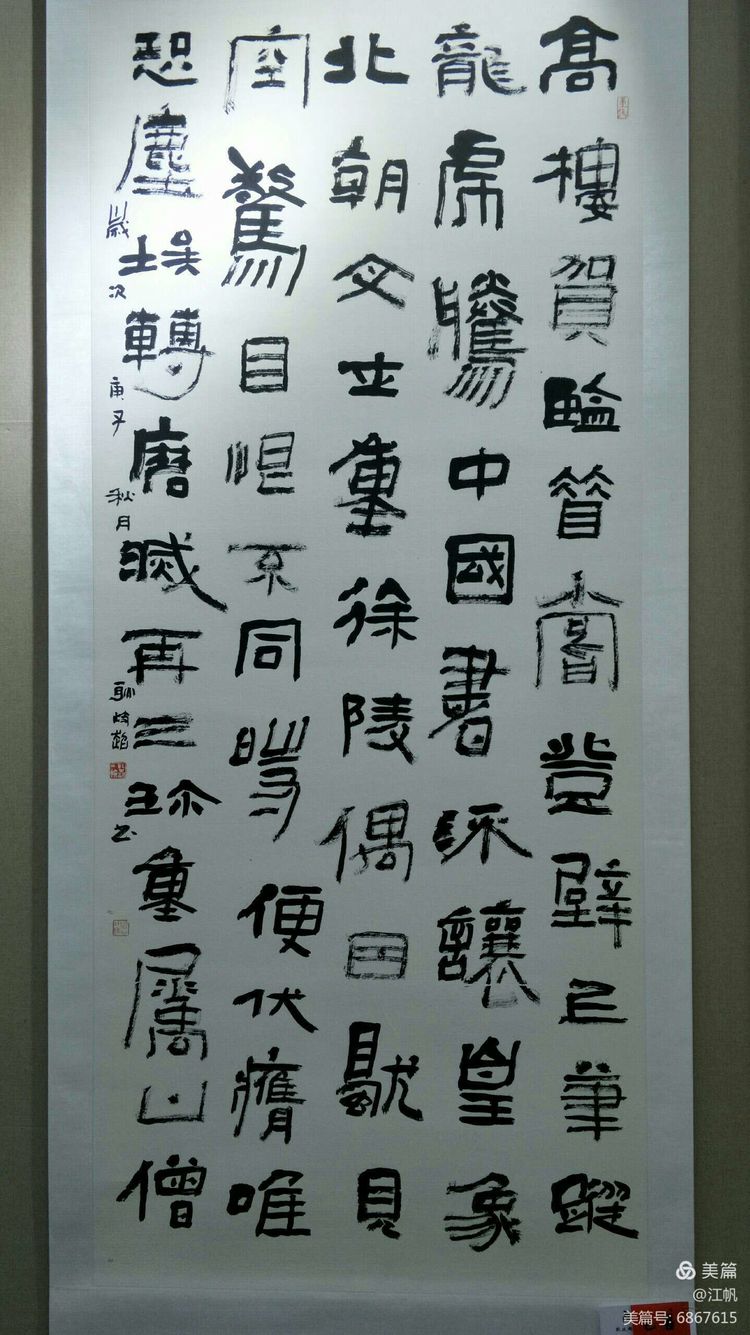 高樓賀監昔曾登壁上筆蹤
龍虎騰中國書流讓皇象
北朝文士重徐陵偶因獨見
空驚目恨不同時便伏膺唯
恐塵埃轉磨滅再三珍重屬山僧
歲次庚子秋月
美篇
@江帆
美篇号: 6867615